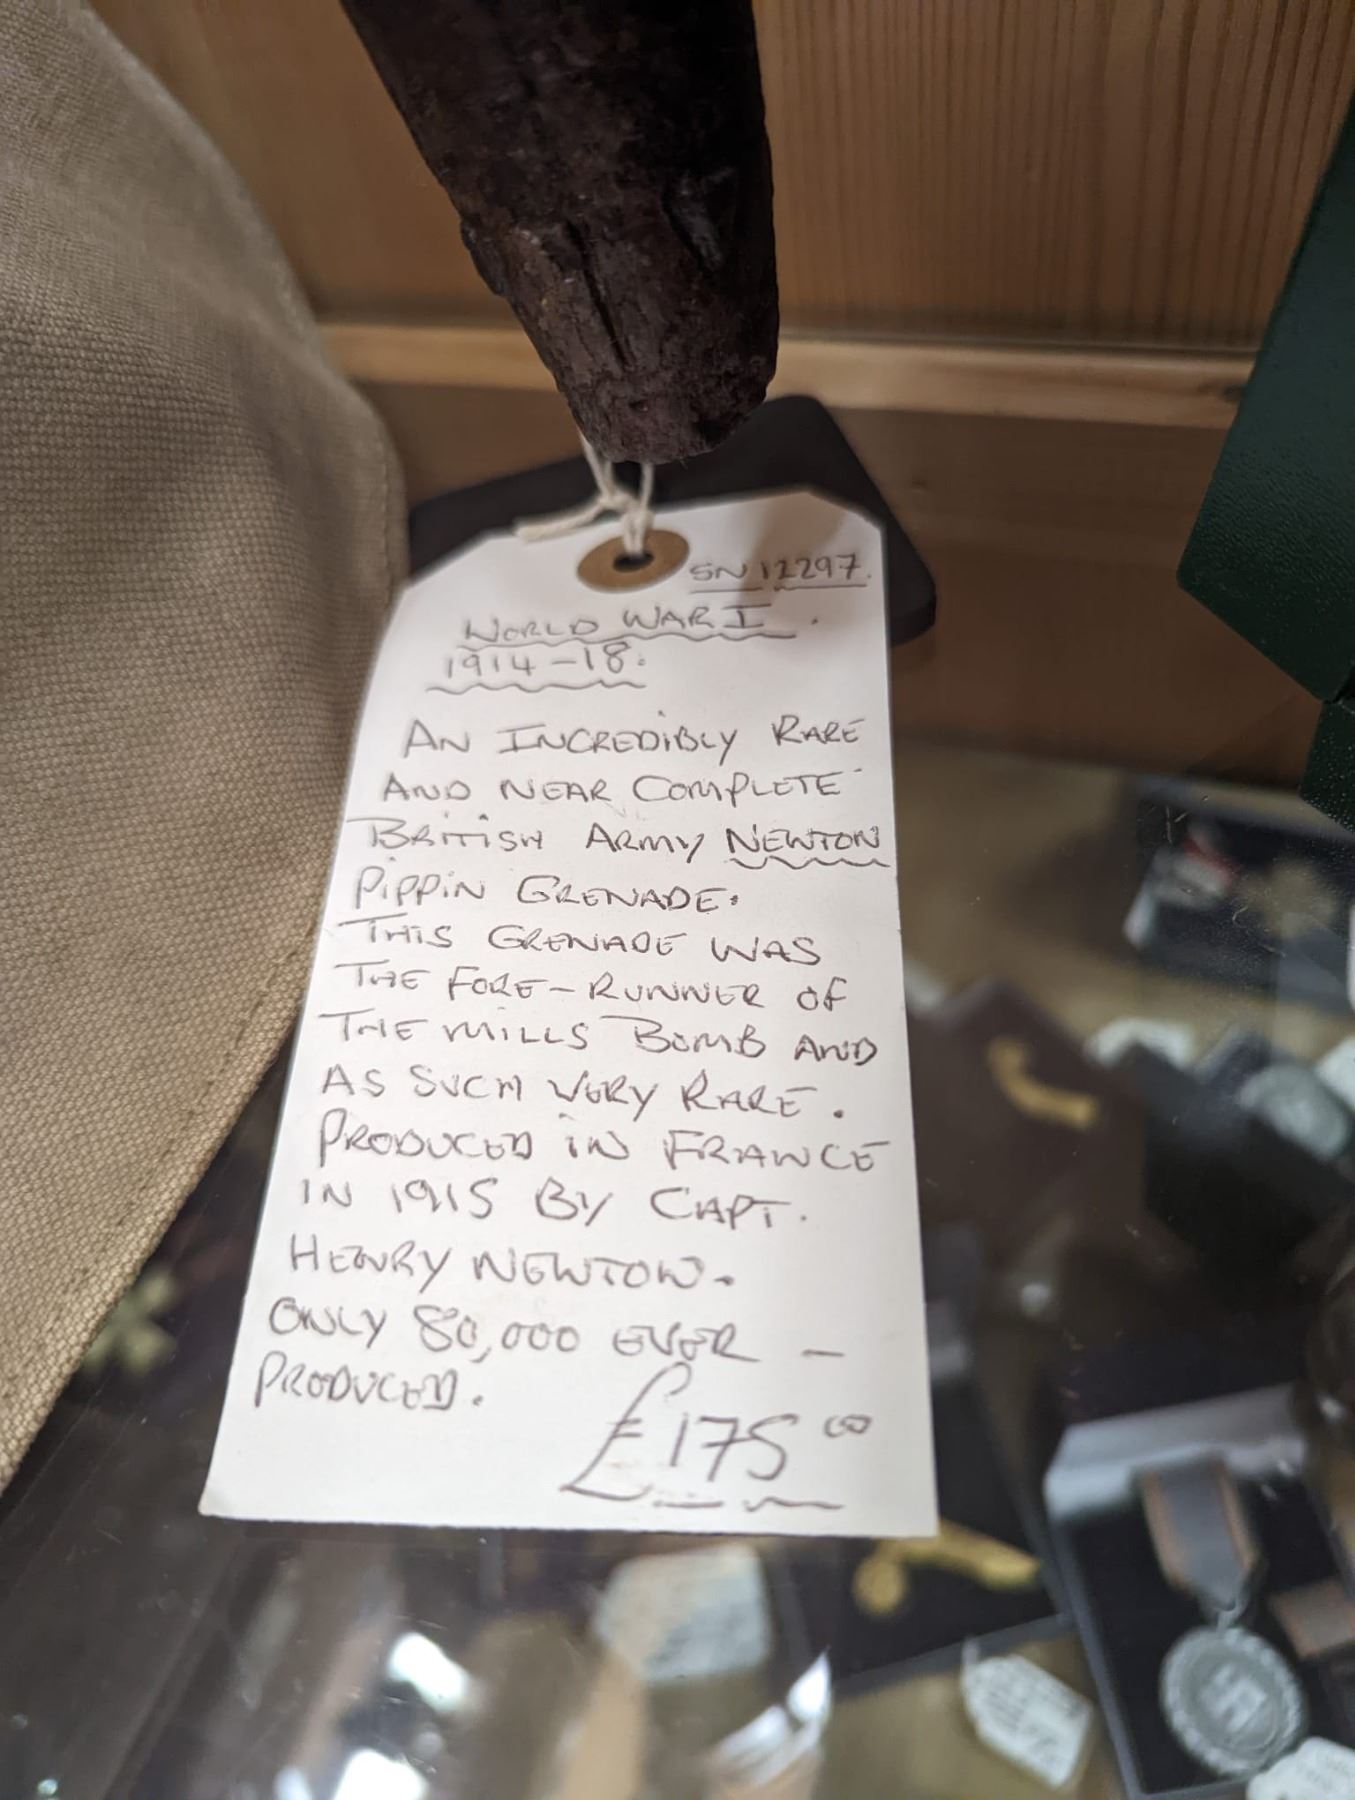 SN 12297.
WORLD WAR I.
1914-18.
AN INCREDIBLY RARE
AND NEAR COMPLETE
BRITISH ARMY NEWTON
PIPPIN GRENADE.
THIS GRENADE WAS
THE FORE-RUNNER OF
THE MILLS BOMB AND
AS SUCH VERY RARE.
PRODUCED IN FRANCE
IN 1915 BY CAPT.
HENRY NEWTON.
ONLY 80,000 EVER -
PRODUCED.
£175 00